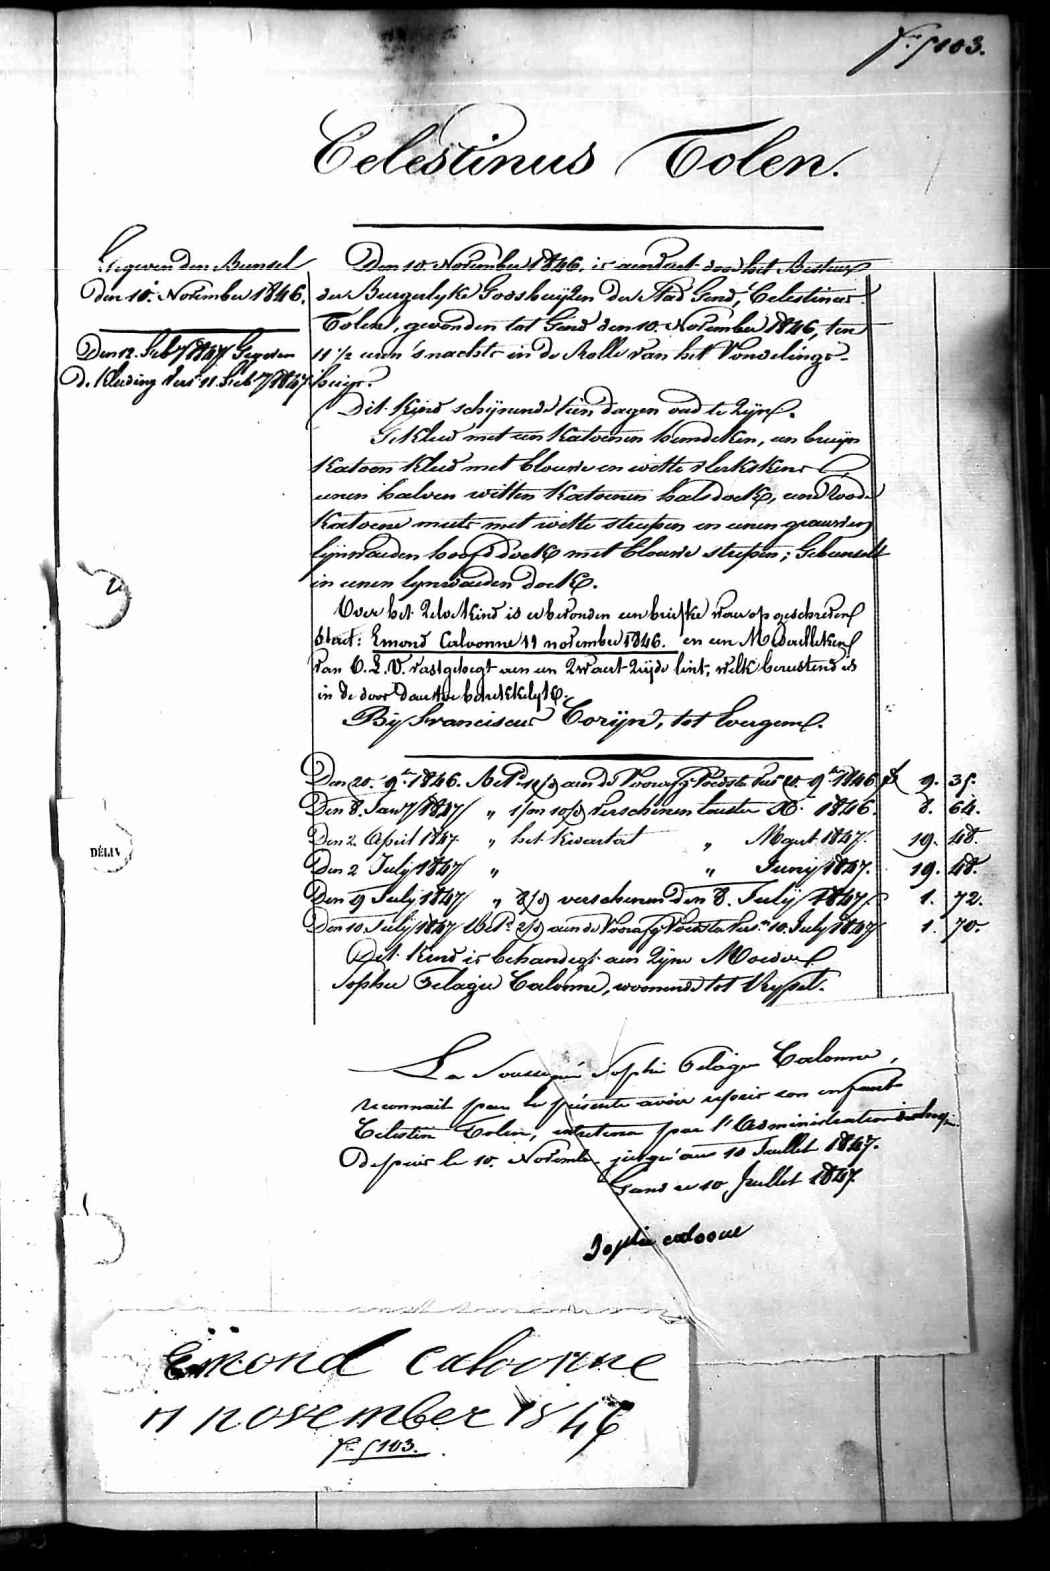 fº 5103.
Celestinus Tolen.
Gegeven den Bunsel
den 10. November 1846.
Den 12. Feb.y 1847 Gegeven
d. Kleeding Vers. 11. Feb.y 1847
Den 10. November 1846, is aenvaerd door het Bestuer
der Burgerlyke Godshuijzen der Stad Gend, Celestinus
Tolen, gevonden tot Gend den 10. November 1846, ten
11 1/2 uren 's nachts in de Rolle van het Vondelings-
huijs.
Dit kind schijnende tien dagen oud te zijn.
Gekleed met een katoenen hemdeken, een bruijn
katoen kleed met blouwe en witte vlekskens
eenen halven witten katoenen halsdoek, eene roode
katoene muts met witte strepen en eenen graeuwen
lijnwaeden hoofddoek met blouwe strepen; Gebunseld
in eenen lynwaeden doek.
Over het zelve kind is er bevonden een briefke waer op geschreven
staet: Emond Calvonne 11 november 1846. en een Medaelleken
van O. L. V. vastgehegt aen een zwaert zijde lint, welk berustend is
in de doos daertoe betrekkelyk.
Bij Franciscus Corijn, tot Evergem.
Den 20. 9ber 1846. aen de Voorafg. Voedster 9ber 1846 9. 35.
Den 8. Jan.y 1847 " verschenen laesten Xr. 1846. 8. 64.
Den 2. April 1847. " het kwartael " Maert 1847. 19. 48.
Den 2 July 1847 " " Junij 1847. 19. 48.
Den 9 July 1847 " verschenen den 8. July 1847. 1. 72.
Den 10 July 1847 aen de Voorafg. Voedster 10. July 1847 1. 70.
Dit kind is behandigt aen zijne Moeder
Sophie Pelagie Calonne, woonende tot Ryssel.
La Soussignée Sophie Pelagie Calonne,
reconnait par la présente avoir repris son enfant
Celestin Tolen, entretenu par l'Administration
depuis le 10. Novembre jusqu'au 10 Juillet 1847.
Gand ce 10 Juillet 1847
Sophie calonne
DÉLIV
Emond calvonne
11 november 1846
fº 5103.